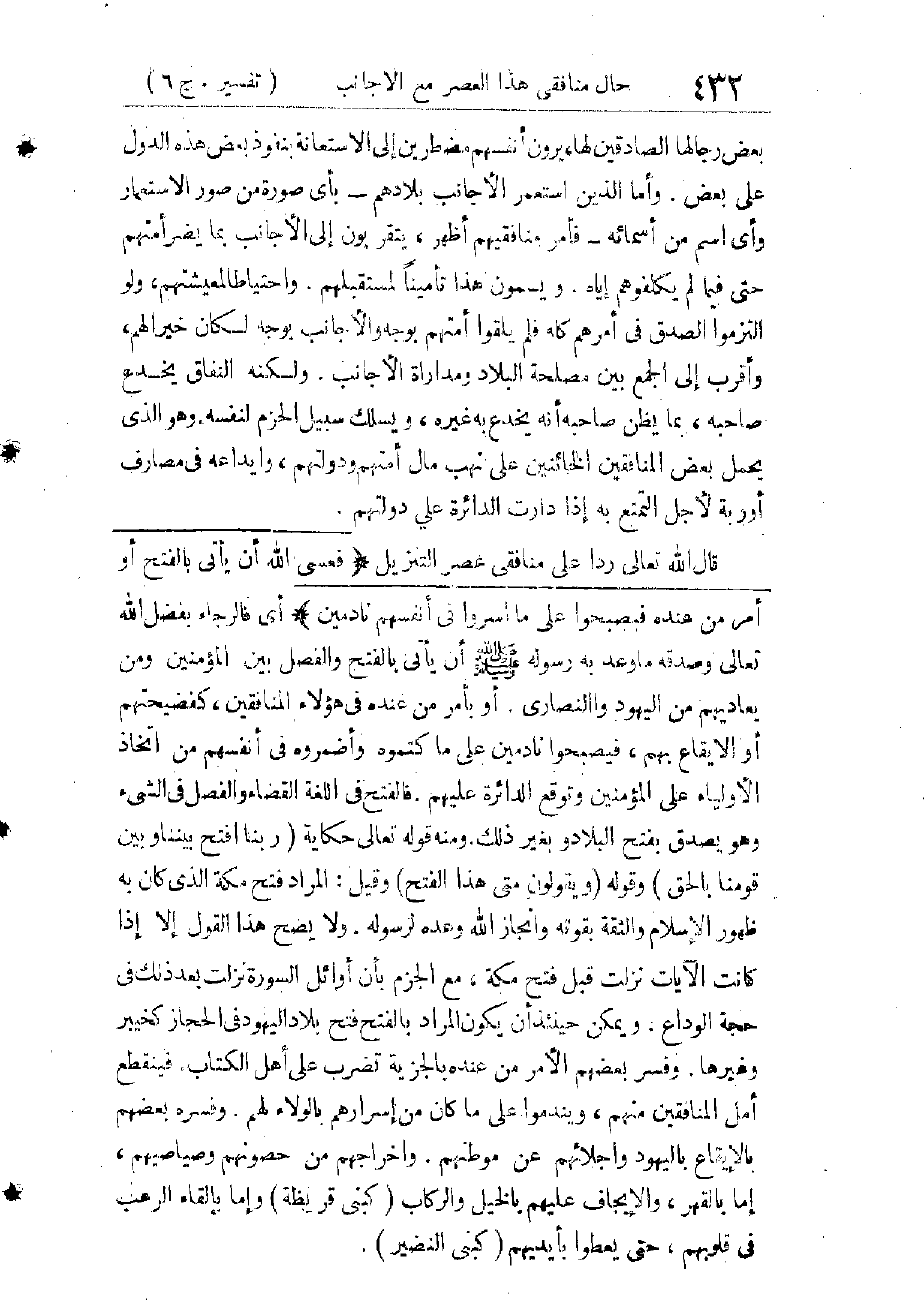 ٤٣٢ حال منافقى هذا العصر مع الاجانب ( تفسير . ج ٦ )
بعض رجالها الصادقين لها، يرون أنفسهم مضطرين إلى الاستعانة بنفوذ بعض هذه الدول
على بعض . وأما الذين استعمر الأجانب بلادهم ــ بأى صورة من صور الاستعمار
وأى اسم من أسمائه ــ فأمر منافقيهم أظهر ، يتقربون إلى الأجانب بما يضر أمتهم
حتى فيما لم يكلفوهم إياه . ويسمون هذا تأميناً لمستقبلهم . واحتياطا لمعيشتهم، ولو
التزموا الصدق فى أمرهم كله فلم يلقوا أمتهم بوجه والأجانب بوجه لكان خيرا لهم،
وأقرب إلى الجمع بين مصلحة البلاد ومداراة الأجانب . ولكنه النفاق يخدع
صاحبه ، بما يظن صاحبه أنه يخدع به غيره ، ويسلك سبيل الحزم لنفسه. وهو الذى
يحمل بعض المنافقين الخائنين على نهب مال أمتهم ودولتهم ، وايداعه فى مصارف
أوربة لأجل التمتع به إذا دارت الدائرة علي دولتهم .
قال الله تعالى ردا على منافقى عصر التنزيل ﴿ فعسى الله أن يأتى بالفتح أو
أمر من عنده فيصبحوا على ما اسروا فى أنفسهم نادمين ﴾ أى فالرجاء بفضل الله
تعالى وصدقه ماوعد به رسوله ﷺ أن يأتى بالفتح والفصل بين المؤمنين ومن
يعاديهم من اليهود واالنصارى . أو بأمر من عنده فى هؤلاء المنافقين ، كفضيحتهم
أو الايقاع بهم ، فيصبحوا نادمين على ما كتموه وأضمروه فى أنفسهم من اتخاذ
الأولياء على المؤمنين وتوقع الدائرة عليهم . فالفتح فى اللغة القضاء والفصل فى الشىء
وهو يصدق بفتح البلاد و بغير ذلك. ومنه قوله تعالى حكاية ( ربنا افتح بيننا وبين
قومنا بالحق ) وقوله (ويقولون متى هذا الفتح) وقيل : المراد فتح مكة الذى كان به
ظهور الإسلام والثقة بقوته وانجاز الله وعده لرسوله . ولا يصح هذا القول إلا إذا
كانت الآيات نزلت قبل فتح مكة ، مع الجزم بأن أوائل السورة نزلت بعد ذلك فى
حجة الوداع . ويمكن حينئذ أن يكون المراد بالفتح فتح بلاد اليهود فى الحجاز كخيبر
وغيرها . وفسر بعضهم الأمر من عنده بالجزية تضرب على أهل الكتاب. فينقطع
أمل المنافقين منهم ، ويندموا على ما كان من إسرارهم بالولاء لهم . وفسره بعضهم
بالإيقاع باليهود واجلائهم عن موطنهم . واخراجهم من حصونهم وصياصيهم ،
إما بالقهر ، والإيجاف عليهم بالخيل والركاب ( كبنى قريظة ) وإما بإلقاء الرعب
فى قلوبهم ، حتى يعطوا بأيديهم ( كبنى النضير ) .